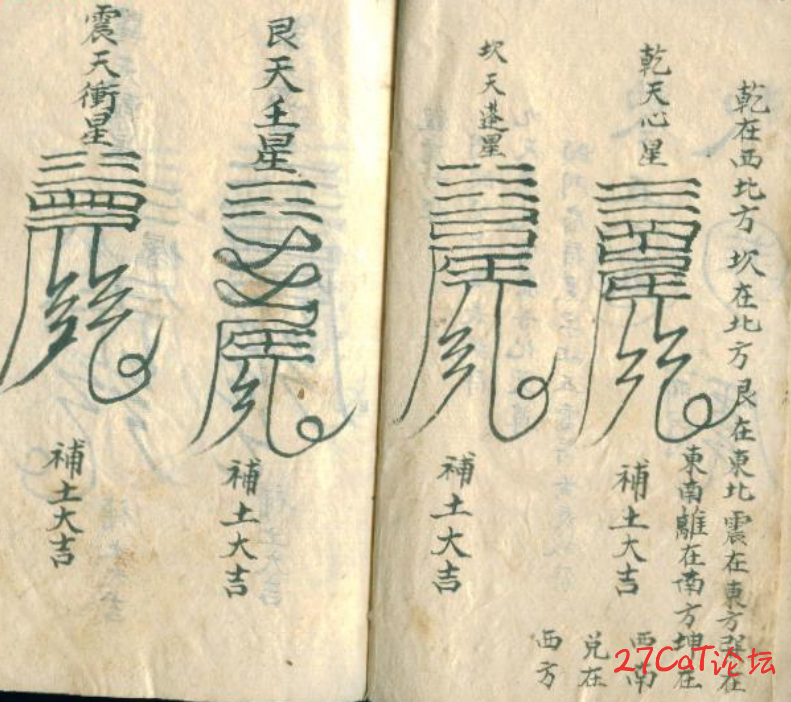 乾在西北方坎在北方艮在東北震在東方巽在
東南離在南方坤在
西南
兌在
西方
乾天心星
補土大吉
坎天蓬星
補土大吉
艮天壬星
補土大吉
震天衝星
補土大吉
27CaT论坛